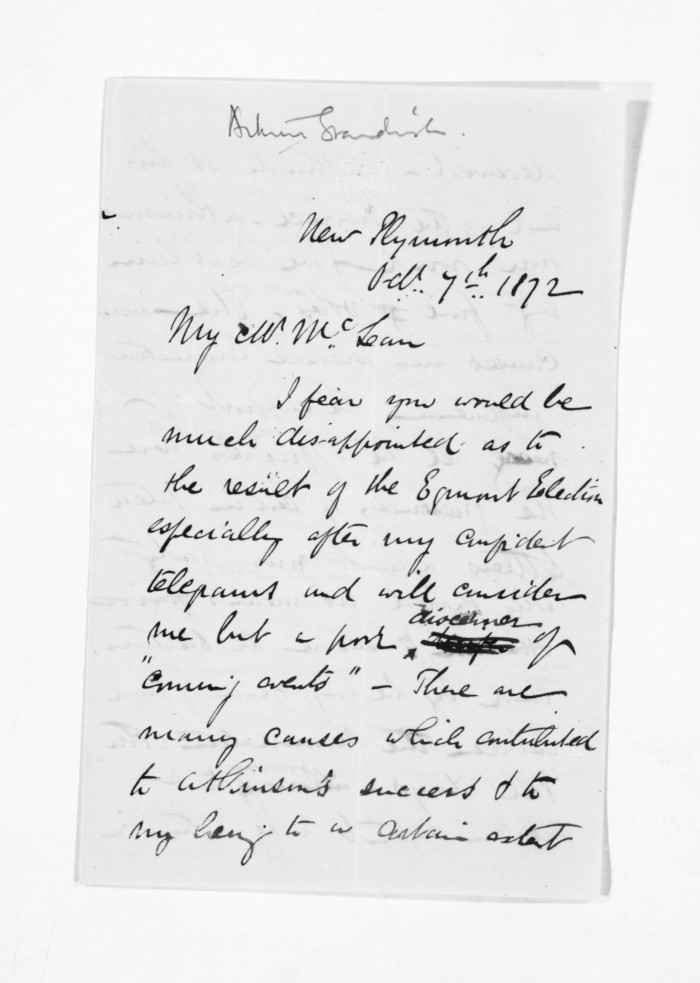 Arthur Standish.
New Plymouth
Octr. 7th. 1872
My Dr. Mr. McLean
I fear you would be
much disappointed as to
the result of the Egmont Election
especially after my confident
telegrams and will consider
me but a poor discerner of
"coming events" - There are
many causes which contributed
to Atkinson's success & to
my being to a certain extent